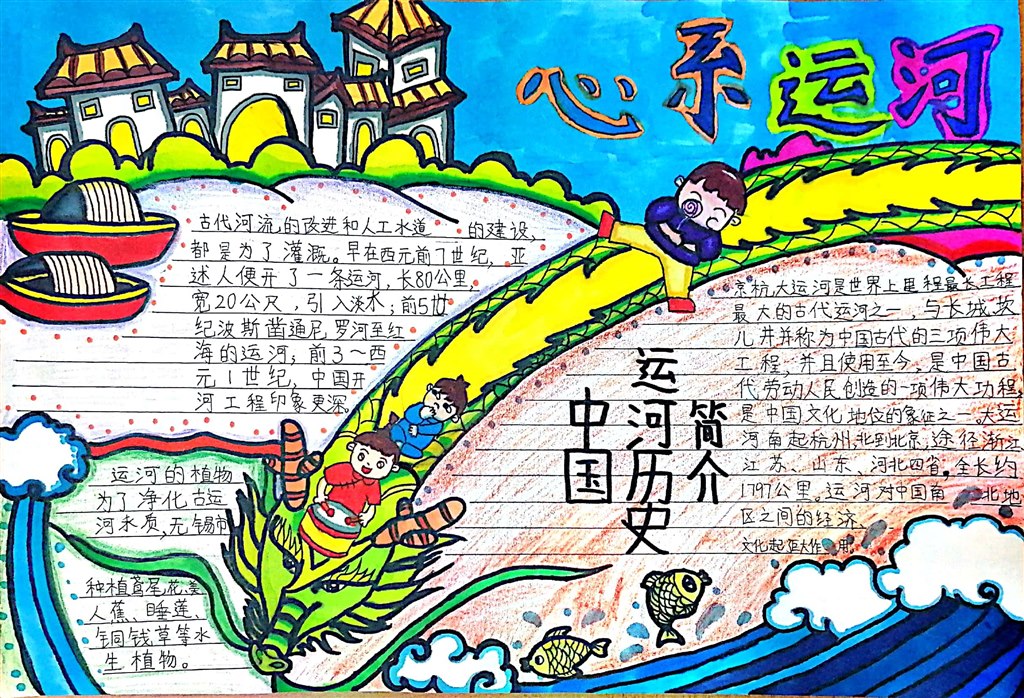 心系运河
古代河流的改进和人工水道 的建设,
都是为了灌溉。早在西元前7世纪,亚
述人便开了一条运河,长80公里,
宽20公尺,引入淡水;前5世
纪波斯凿通尼罗河至红
海的运河;前3~西
元1世纪,中国开
河工程印象更深
运河的植物
为了净化古运
河水质,无锡市
种植鸢尾花、美
人蕉、睡莲、
铜钱草等水
生植物。
中国
运河历史
简介
京杭大运河是世界上里程最长工程
最大的古代运河之一,与长城、坎
儿井并称为中国古代的三项伟大
工程,并且使用至今,是中国古
代劳动人民创造的一项伟大功程,
是中国文化地位的象征之一。大运
河南起杭州,北到北京,途径浙江
江苏、山东、河北四省。全长约
1797公里。运河对中国南 北地
区之间的经济、
文化起巨大作用